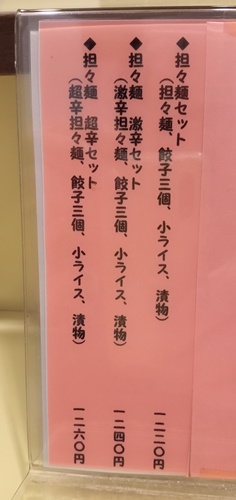 ◆担々麺セット
（担々麺、餃子三個、小ライス、漬物）
一二二〇円
◆担々麺　激辛セット
（激辛担々麺、餃子三個、小ライス、漬物）
一二四〇円
◆担々麺　超辛セット
（超辛担々麺、餃子三個、小ライス、漬物）
一二六〇円